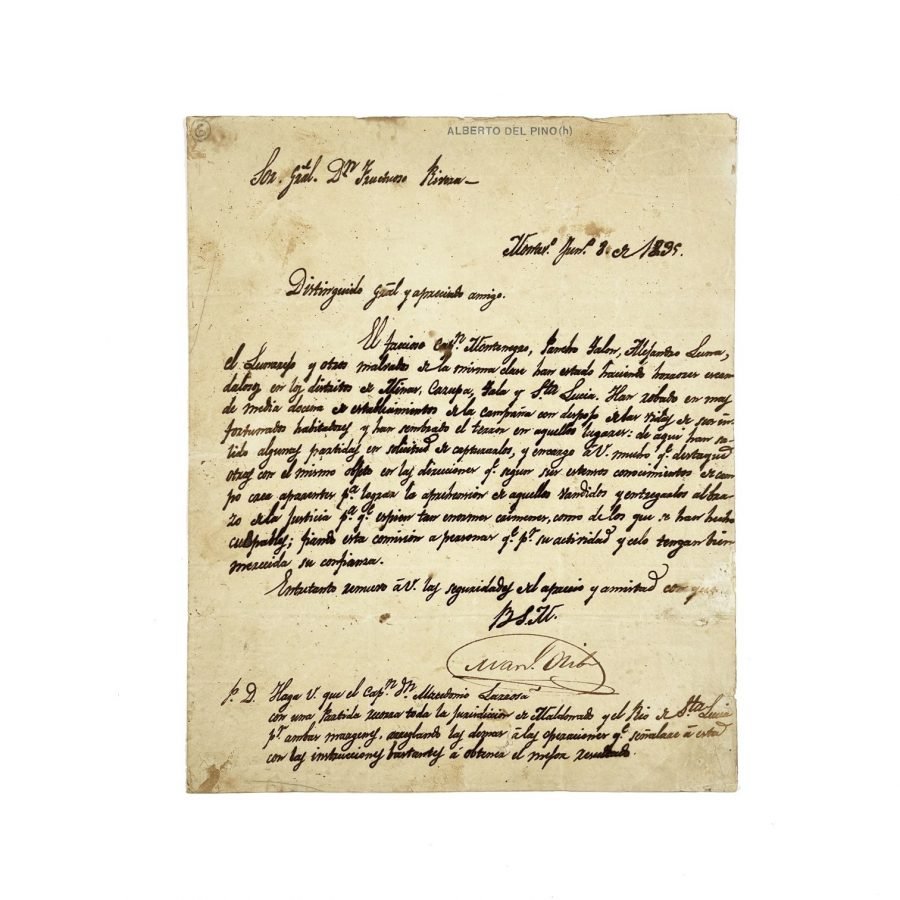 6
ALBERTO DEL PINO (h)
Sor. Gral. Dn Fructuoso Rivera—
Montevo. Jun.o 8 de 1835.
Distinguido Gral y apreciado amigo.
El faccioso Capn. Montenegro, Pancho Jalon, Alejandro Luna,
el Lunarejo y otros malvados de la misma clase han estado haciendo horrores escan
dalosos en los distritos de Minas, Casupa, Gala y Sta Lucia. Han robado en mas
de media docena de establecimientos de la campaña con despojo de las vidas de sus in-
fortunados habitadores y han sembrado el terror en aquellos lugares: de aqui han sa-
lido algunas partidas en solicitud de capturarlos, y encargo á V. mucho qe. destaque
otras con el mismo objeto en las direcciones qe. segun sus estensos conocimientos de cam-
po crea aparentes pa. lograr la aprehension de aquellos vandidos y entregarlos al bra-
zo de la Justicia pa. qe. espien tan enormes crimenes, como de los que se han hecho
culpables; fiando esta comision a personas qe. pr. su actividad y celo tengan bien
merecida su confianza.
Entretanto renuevo á V. las seguridades del aprecio y amistad con que
B.S.M.
Manl. Oribe
P. D. Haga V. que el Capn. Dn. Macedonio
con una Partida recorra toda la Jurisdicion de Maldonado y el Rio de Sta Lucia
pr. ambas margenes, arreglando las demas á las operaciones qe. señalare á esta
con las instrucciones bastantes á obtener el mejor resultado.